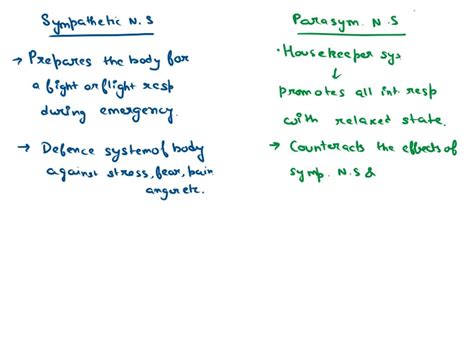 Sympathetic N.S
→ Prepares the body for
a fight or flight resp
during emergency.
→ Defence system of body
against stress, fear, pain
anger etc.
Parasym. N.S
• Housekeeper sys
↓
promotes all int. resp
with relaxed state.
→ Counteracts the effects of
symp. N.S &